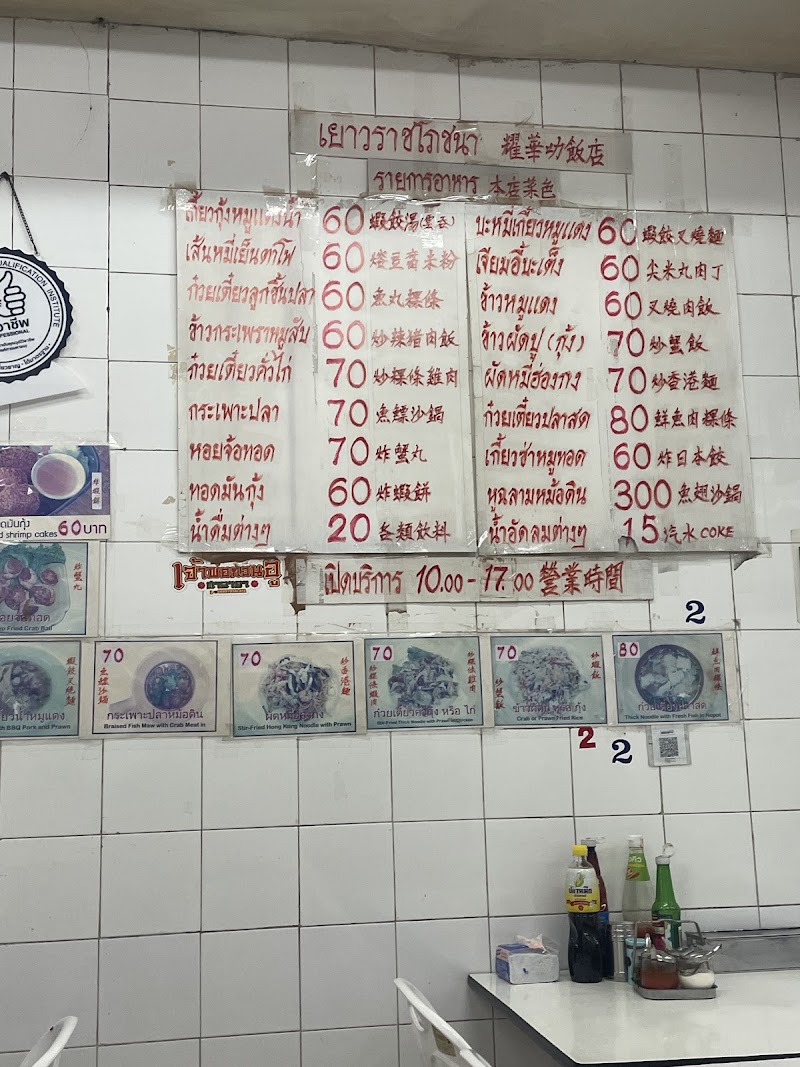 เยาวราชโภชนา 耀華功飯店
รายการอาหาร 本店菜色
เกี๊ยวกุ้งหมูแดงน้ำ 60 蝦餃湯(雲吞)
เส้นหมี่เย็นตาโฟ 60
ก๋วยเตี๋ยวลูกชิ้นปลา 60 魚丸粿條
ข้าวกระเพราหมูสับ 60 炒辣猪肉飯
ก๋วยเตี๋ยวคั่วไก่ 70 炒粿條雞肉
กระเพาะปลา 70 魚鰾沙鍋
หอยจ้อทอด 70 炸蟹丸
ทอดมันกุ้ง 60 炸蝦餅
น้ำดื่มต่างๆ 20 各類飲料
บะหมี่เกี๊ยวหมูแดง 60 蝦餃叉燒麵
เจียมอี้บะเต็ง 60 尖米丸肉丁
ข้าวหมูแดง 60 叉燒肉飯
ข้าวผัดปู (กุ้ง) 70 炒蟹飯
ผัดหมี่ฮ่องกง 70 炒香港麵
ก๋วยเตี๋ยวปลาสด 80 鮮魚肉粿條
เกี๊ยวซ่าหมูทอด 60 炸日本餃
หูฉลามหม้อดิน 300 魚翅沙鍋
น้ำอัดลมต่างๆ 15 汽水 COKE
เปิดบริการ 10.00 - 17.00 營業時間
QUALIFICATION INSTITUTE
炸蝦餅
shrimp cakes 60 บาท
炸蟹丸
Fried Crab Ball
蝦餃叉燒麵
with BBQ Pork and Prawn
70
魚鰾沙鍋
กระเพาะปลาหม้อดิน
Braised Fish Maw with Crab Meat in
70
炒香港麵
ผัดหมี่ฮ่องกง
Stir-Fried Hong Kong Noodle with Prawn
70
炒粿條雞肉
炒粿條蝦肉
ก๋วยเตี๋ยวคั่วกุ้ง หรือ ไก่
70
炒蝦飯
炒蟹飯
Crab or Prawn Fried Rice
80
鮮魚肉粿條
ก๋วยเตี๋ยวปลาสด
Thick Noodle with Fresh Fish in Hotpot
2
2
2